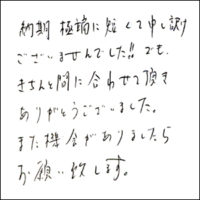 納期 極端に短くて申し訳
ございませんでした!! でも、
きちんと間に合わせて頂き
ありがとうございました。
また機会がありましたら
お願い致します。